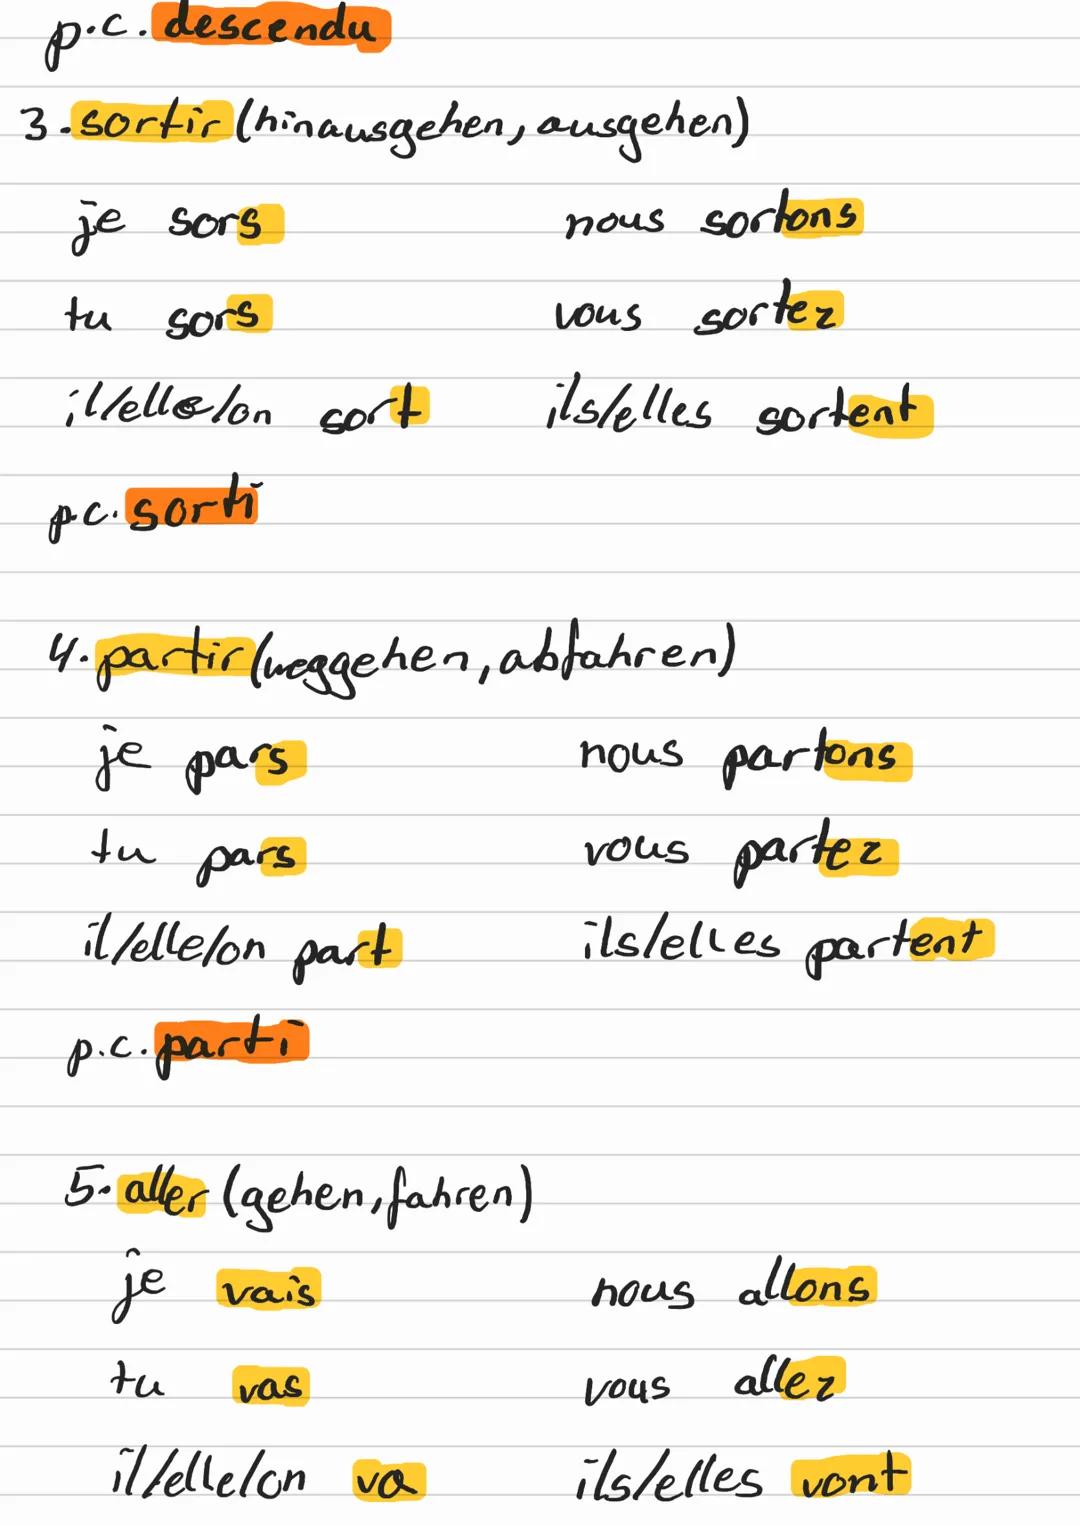 p.c. descendu
3. sortir (hinausgehen, ausgehen)
je sors nous sortons
tu sors vous sortez
il/elle/on sort ils/elles sortent
p.c. sorti
4. partir (weggehen, abfahren)
je pars nous partons
tu pars vous partez
il/elle/on part ils/elles partent
p.c. parti
5. aller (gehen, fahren)
je vais nous allons
tu vas vous allez
il/elle/on va ils/elles vont